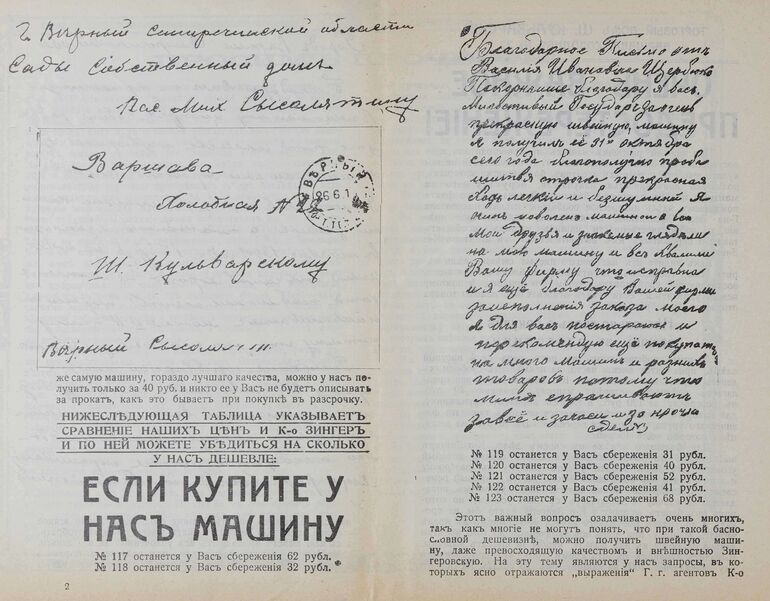 г. Вѣрный семиречинской области
Сады собственный домъ
Вас. Мих Сысолятину
Варшава
Холодная №
ВѢРНЫЙ
26 6 1
Ш. Кульварскому
Вѣрный
же самую машину, гораздо лучшаго качества, можно у насъ по-
лучить только за 40 руб. и никто ее у Васъ не будетъ описывать
за прокатъ, какъ это бываетъ при покупкѣ въ разсрочку.
НИЖЕСЛѢДУЮЩАЯ ТАБЛИЦА УКАЗЫВАЕТЪ
СРАВНЕНІЕ НАШИХЪ ЦѢНЪ И К-о ЗИНГЕРЪ
И ПО НЕЙ МОЖЕТЕ УБѢДИТЬСЯ НА СКОЛЬКО
У НАСЪ ДЕШЕВЛЕ:
ЕСЛИ КУПИТЕ У
НАСЪ МАШИНУ
№ 117 останется у Васъ сбереженія 62 рубл.
№ 118 останется у Васъ сбереженія 32 рубл.
2
Благодарное Письмо отъ
Василія Ивановича Щербюко
Покорнѣйше благодару я васъ
Милостивый Государъ за очень
прекрасную швейную, машину
я получилъ её 31го октября
сего года благополучно проба
шитья строчка прекрасная
ходъ легкій и безшумней Я
очень доволенъ машиной а всѣ
мои друзья и знакомые глядѣли
на мою машину и всѣ хвалили
Вашу фирму что исправна
и я ещё благодару Вашей фирмы
заисполненія заказа моего
Я для васъ постараюсь и
порекомендую ещё покупать
на много машинъ и разнихъ
товаровъ потому что
спрашиваютъ
за всё и за
№ 119 останется у Васъ сбереженія 31 рубл.
№ 120 останется у Васъ сбереженія 40 рубл.
№ 121 останется у Васъ сбереженія 52 рубл.
№ 122 останется у Васъ сбереженія 41 рубл.
№ 123 останется у Васъ сбереженія 68 рубл.
Этотъ важный вопросъ озадачиваетъ очень многихъ,
такъ какъ многіе не могутъ понять, что при такой басно-
словной дешевизнѣ, можно получить швейную маши-
ну, даже превосходящую качествомъ и внѣшностью Зин-
геровскую. На эту тему являются у насъ запросы, въ ко-
торыхъ ясно отражаются „выраженія" Г. г. агентовъ К-о